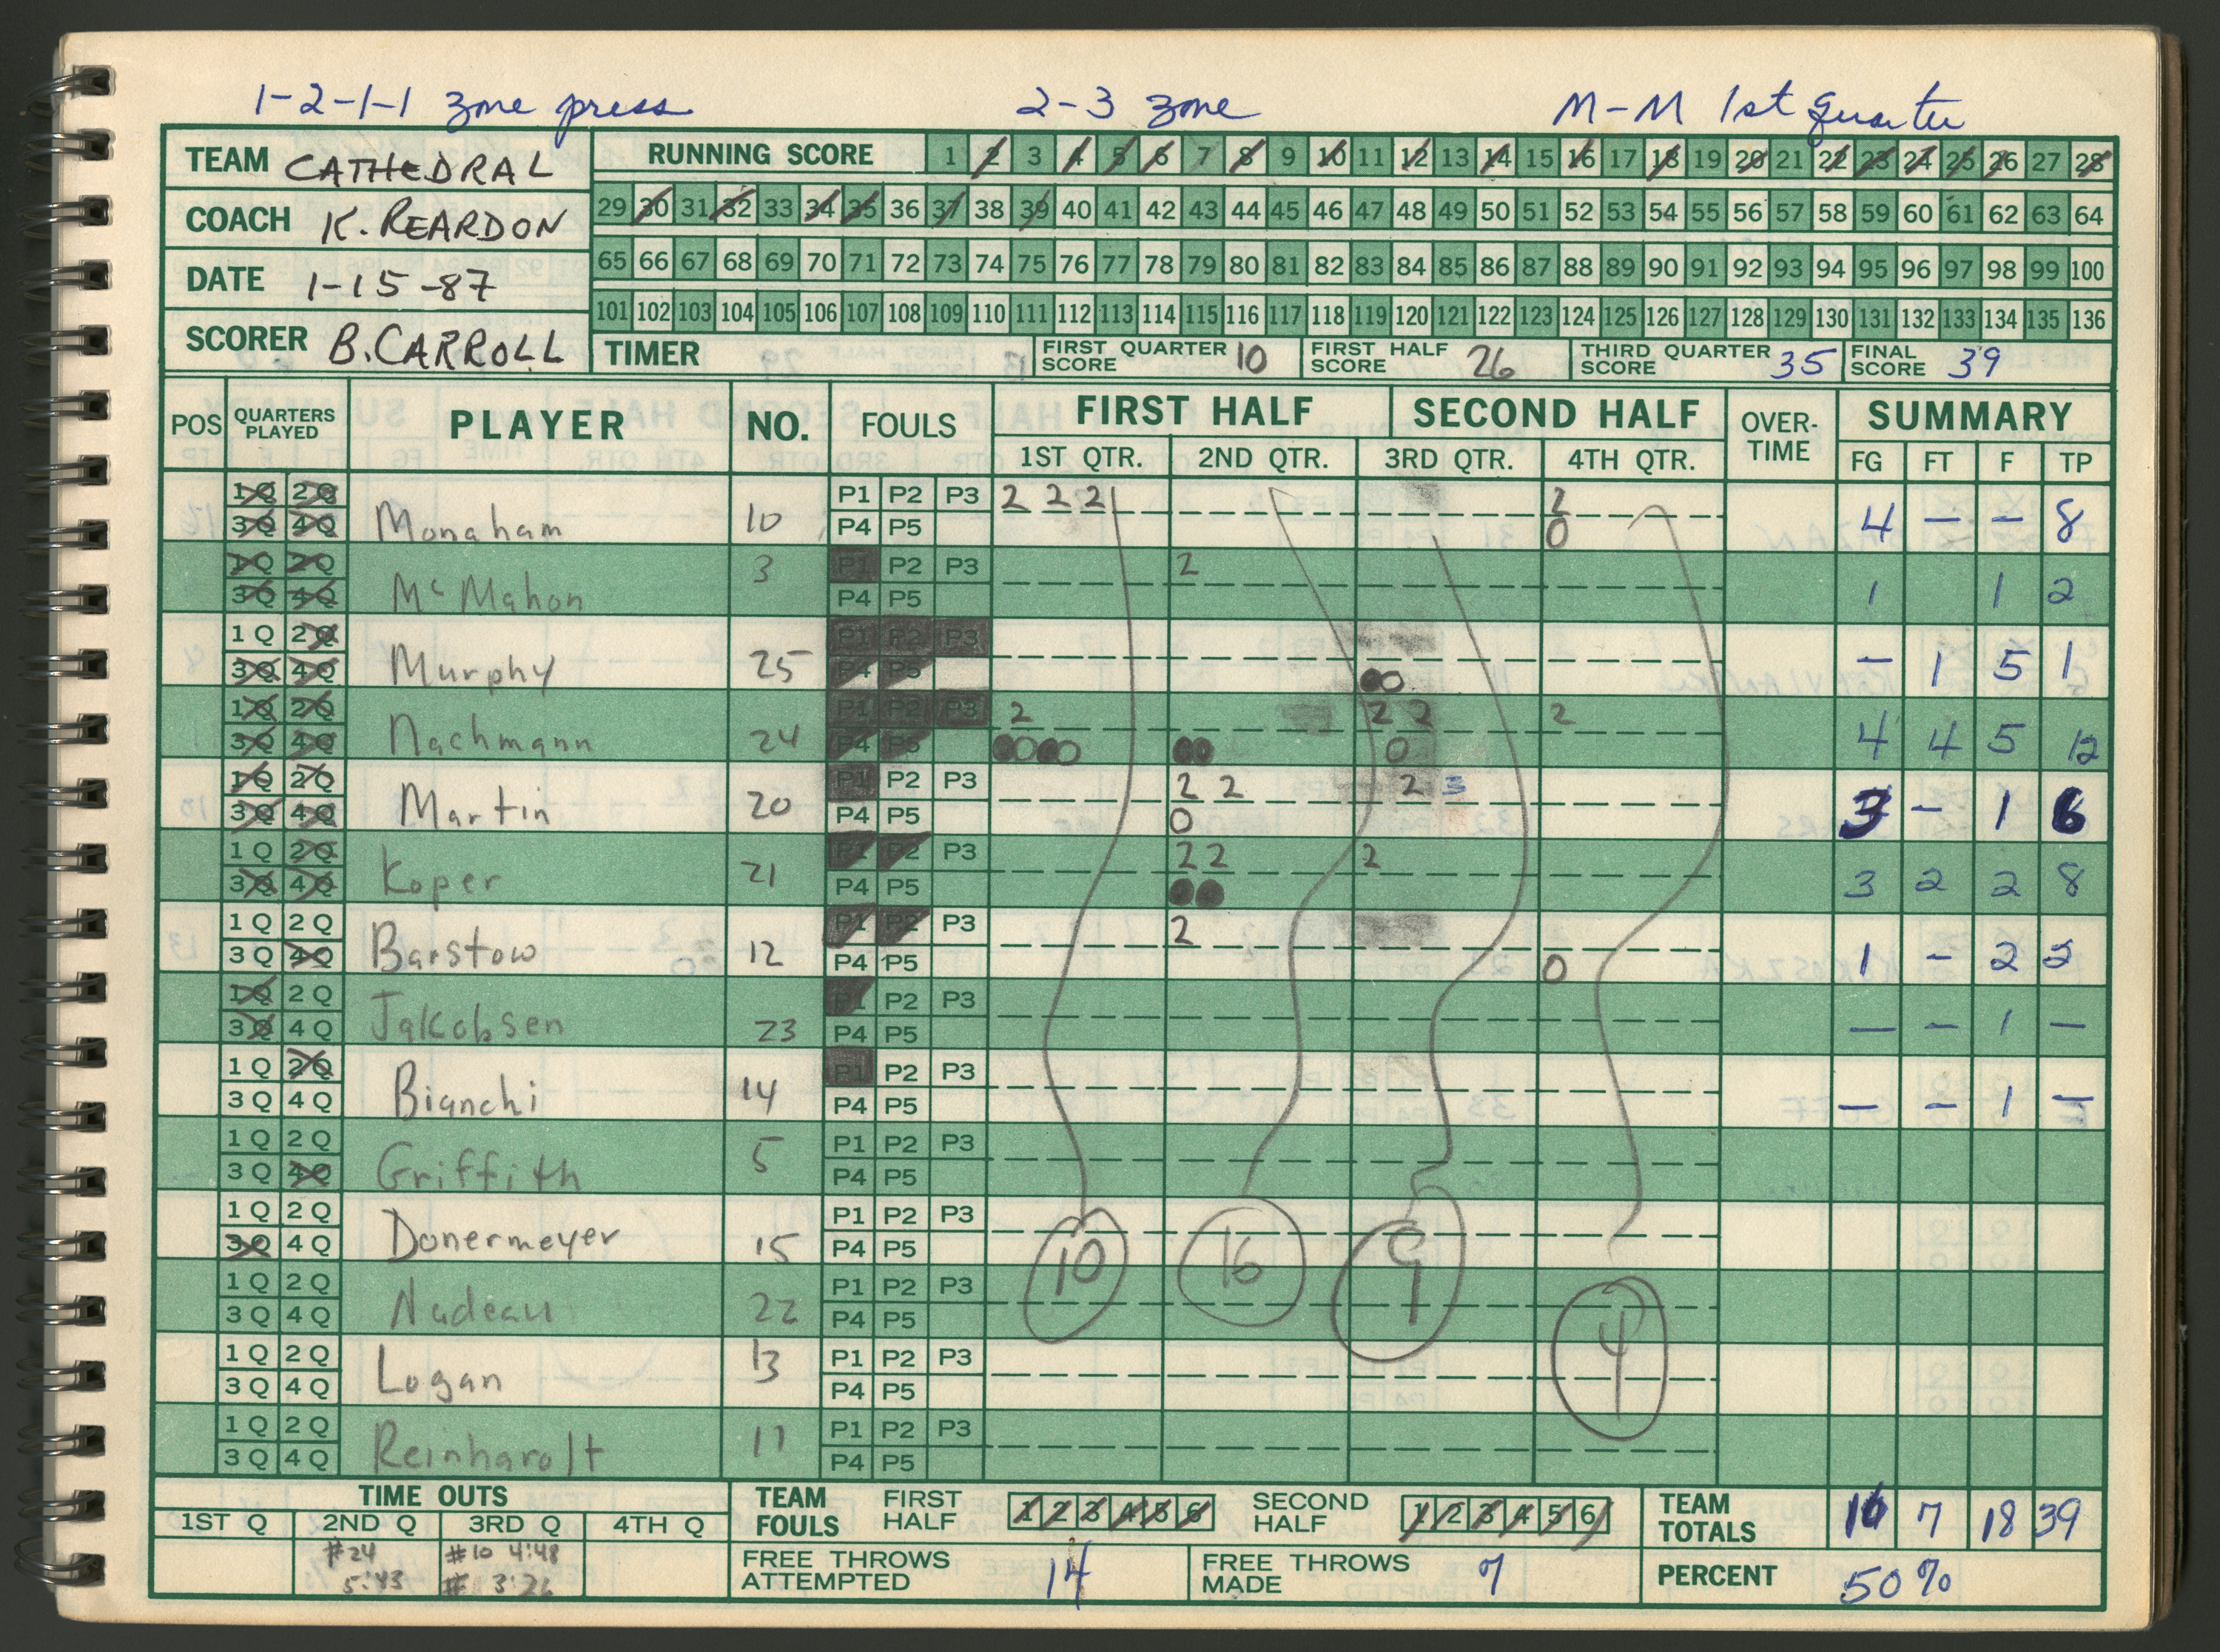 1-2-1-1 zone press 2-3 zone M-M 1st quarter
TEAM CATHEDRAL RUNNING SCORE 1 2 3 4 5 6 7 8 9 10 11 12 13 14 15 16 17 18 19 20 21 22 23 24 25 26 27 28
COACH K. REARDON 29 30 31 32 33 34 35 36 37 38 39 40 41 42 43 44 45 46 47 48 49 50 51 52 53 54 55 56 57 58 59 60 61 62 63 64
DATE 1-15-87 65 66 67 68 69 70 71 72 73 74 75 76 77 78 79 80 81 82 83 84 85 86 87 88 89 90 91 92 93 94 95 96 97 98 99 100
101 102 103 104 105 106 107 108 109 110 111 112 113 114 115 116 117 118 119 120 121 122 123 124 125 126 127 128 129 130 131 132 133 134 135 136
SCORER B. CARROLL TIMER FIRST QUARTER SCORE 10 FIRST HALF SCORE 26 THIRD QUARTER SCORE 35 FINAL SCORE 39
POS QUARTERS PLAYED PLAYER NO. FOULS FIRST HALF SECOND HALF OVER-TIME SUMMARY
1ST QTR. 2ND QTR. 3RD QTR. 4TH QTR. FG FT F TP
1Q 2Q P1 P2 P3 2 2 2 2
3Q 4Q Monaham 10 P4 P5 0 4 - - 8
1Q 2Q 3 P1 P2 P3 2
3Q 4Q McMahon P4 P5 1 1 2
1Q 2Q P1 P2 P3
3Q 4Q Murphy 25 P4 P5 - 1 5 1
1Q 2Q P1 P2 P3 2 2 2 2
3Q 4Q Nachmann 24 P4 P5 0 4 4 5 12
1Q 2Q P1 P2 P3 2 2 2 3
3Q 4Q Martin 20 P4 P5 0 3 - 1 6
1Q 2Q P1 P2 P3 2 2 2
3Q 4Q Koper 21 P4 P5 3 2 2 8
1Q 2Q P1 P2 P3 2
3Q 4Q Barstow 12 P4 P5 0 1 - 2 2
1Q 2Q P1 P2 P3
3Q 4Q Jakobsen 23 P4 P5 - - 1 -
1Q 2Q P1 P2 P3
3Q 4Q Bianchi 14 P4 P5 - - 1 -
1Q 2Q 5 P1 P2 P3
3Q 4Q Griffith P4 P5
1Q 2Q P1 P2 P3
3Q 4Q Donermeyer 15 P4 P5 10 16 9
1Q 2Q P1 P2 P3
3Q 4Q Nadeau 22 P4 P5
1Q 2Q 13 P1 P2 P3 4
3Q 4Q Logan P4 P5
1Q 2Q P1 P2 P3
3Q 4Q Reinharolt 11 P4 P5
TIME OUTS TEAM FOULS FIRST HALF 1 2 3 4 5 6 SECOND HALF 1 2 3 4 5 6 TEAM TOTALS 16 7 18 39
1ST Q 2ND Q 3RD Q 4TH Q
#24 #10 4:48 FREE THROWS ATTEMPTED 14 FREE THROWS MADE 7 PERCENT 50%
5:43 # 3:26